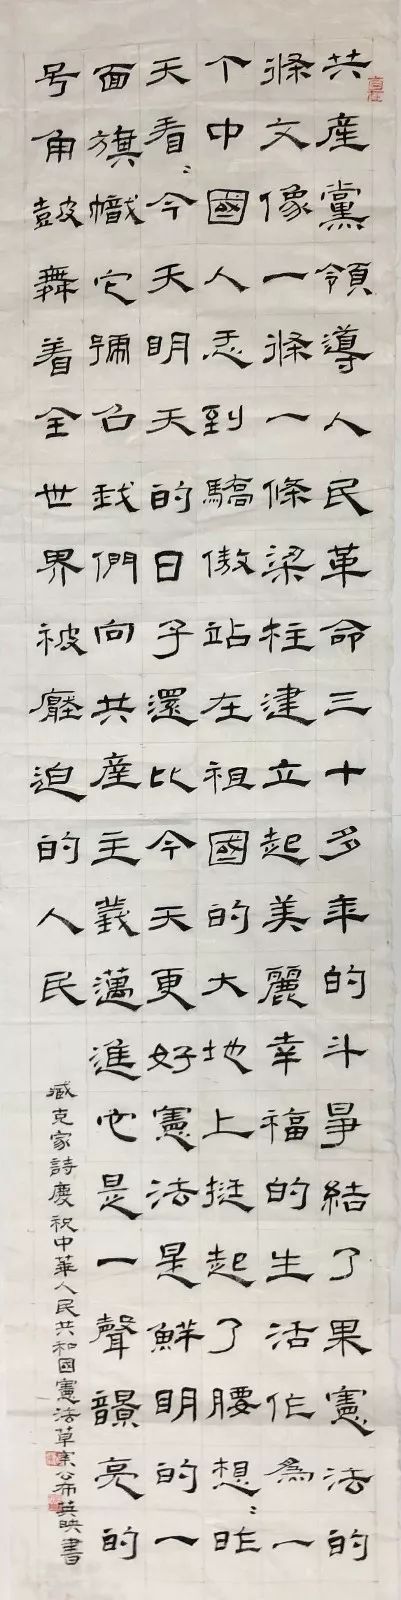 共產黨領導人民革命三十多年的斗爭結了果憲法的
條文像一條一條梁柱建立起美麗幸福的生活作為一
个中國人感到驕傲站在祖國的大地上挺起了腰想〻昨
天看〻今天明天的日子還比今天更好憲法是鮮明的一
面旗幟它號召我們向共產主義邁進它是一聲響亮的
号角鼓舞着全世界被壓迫的人民
臧克家詩慶祝中華人民共和國憲法草案公布英映書